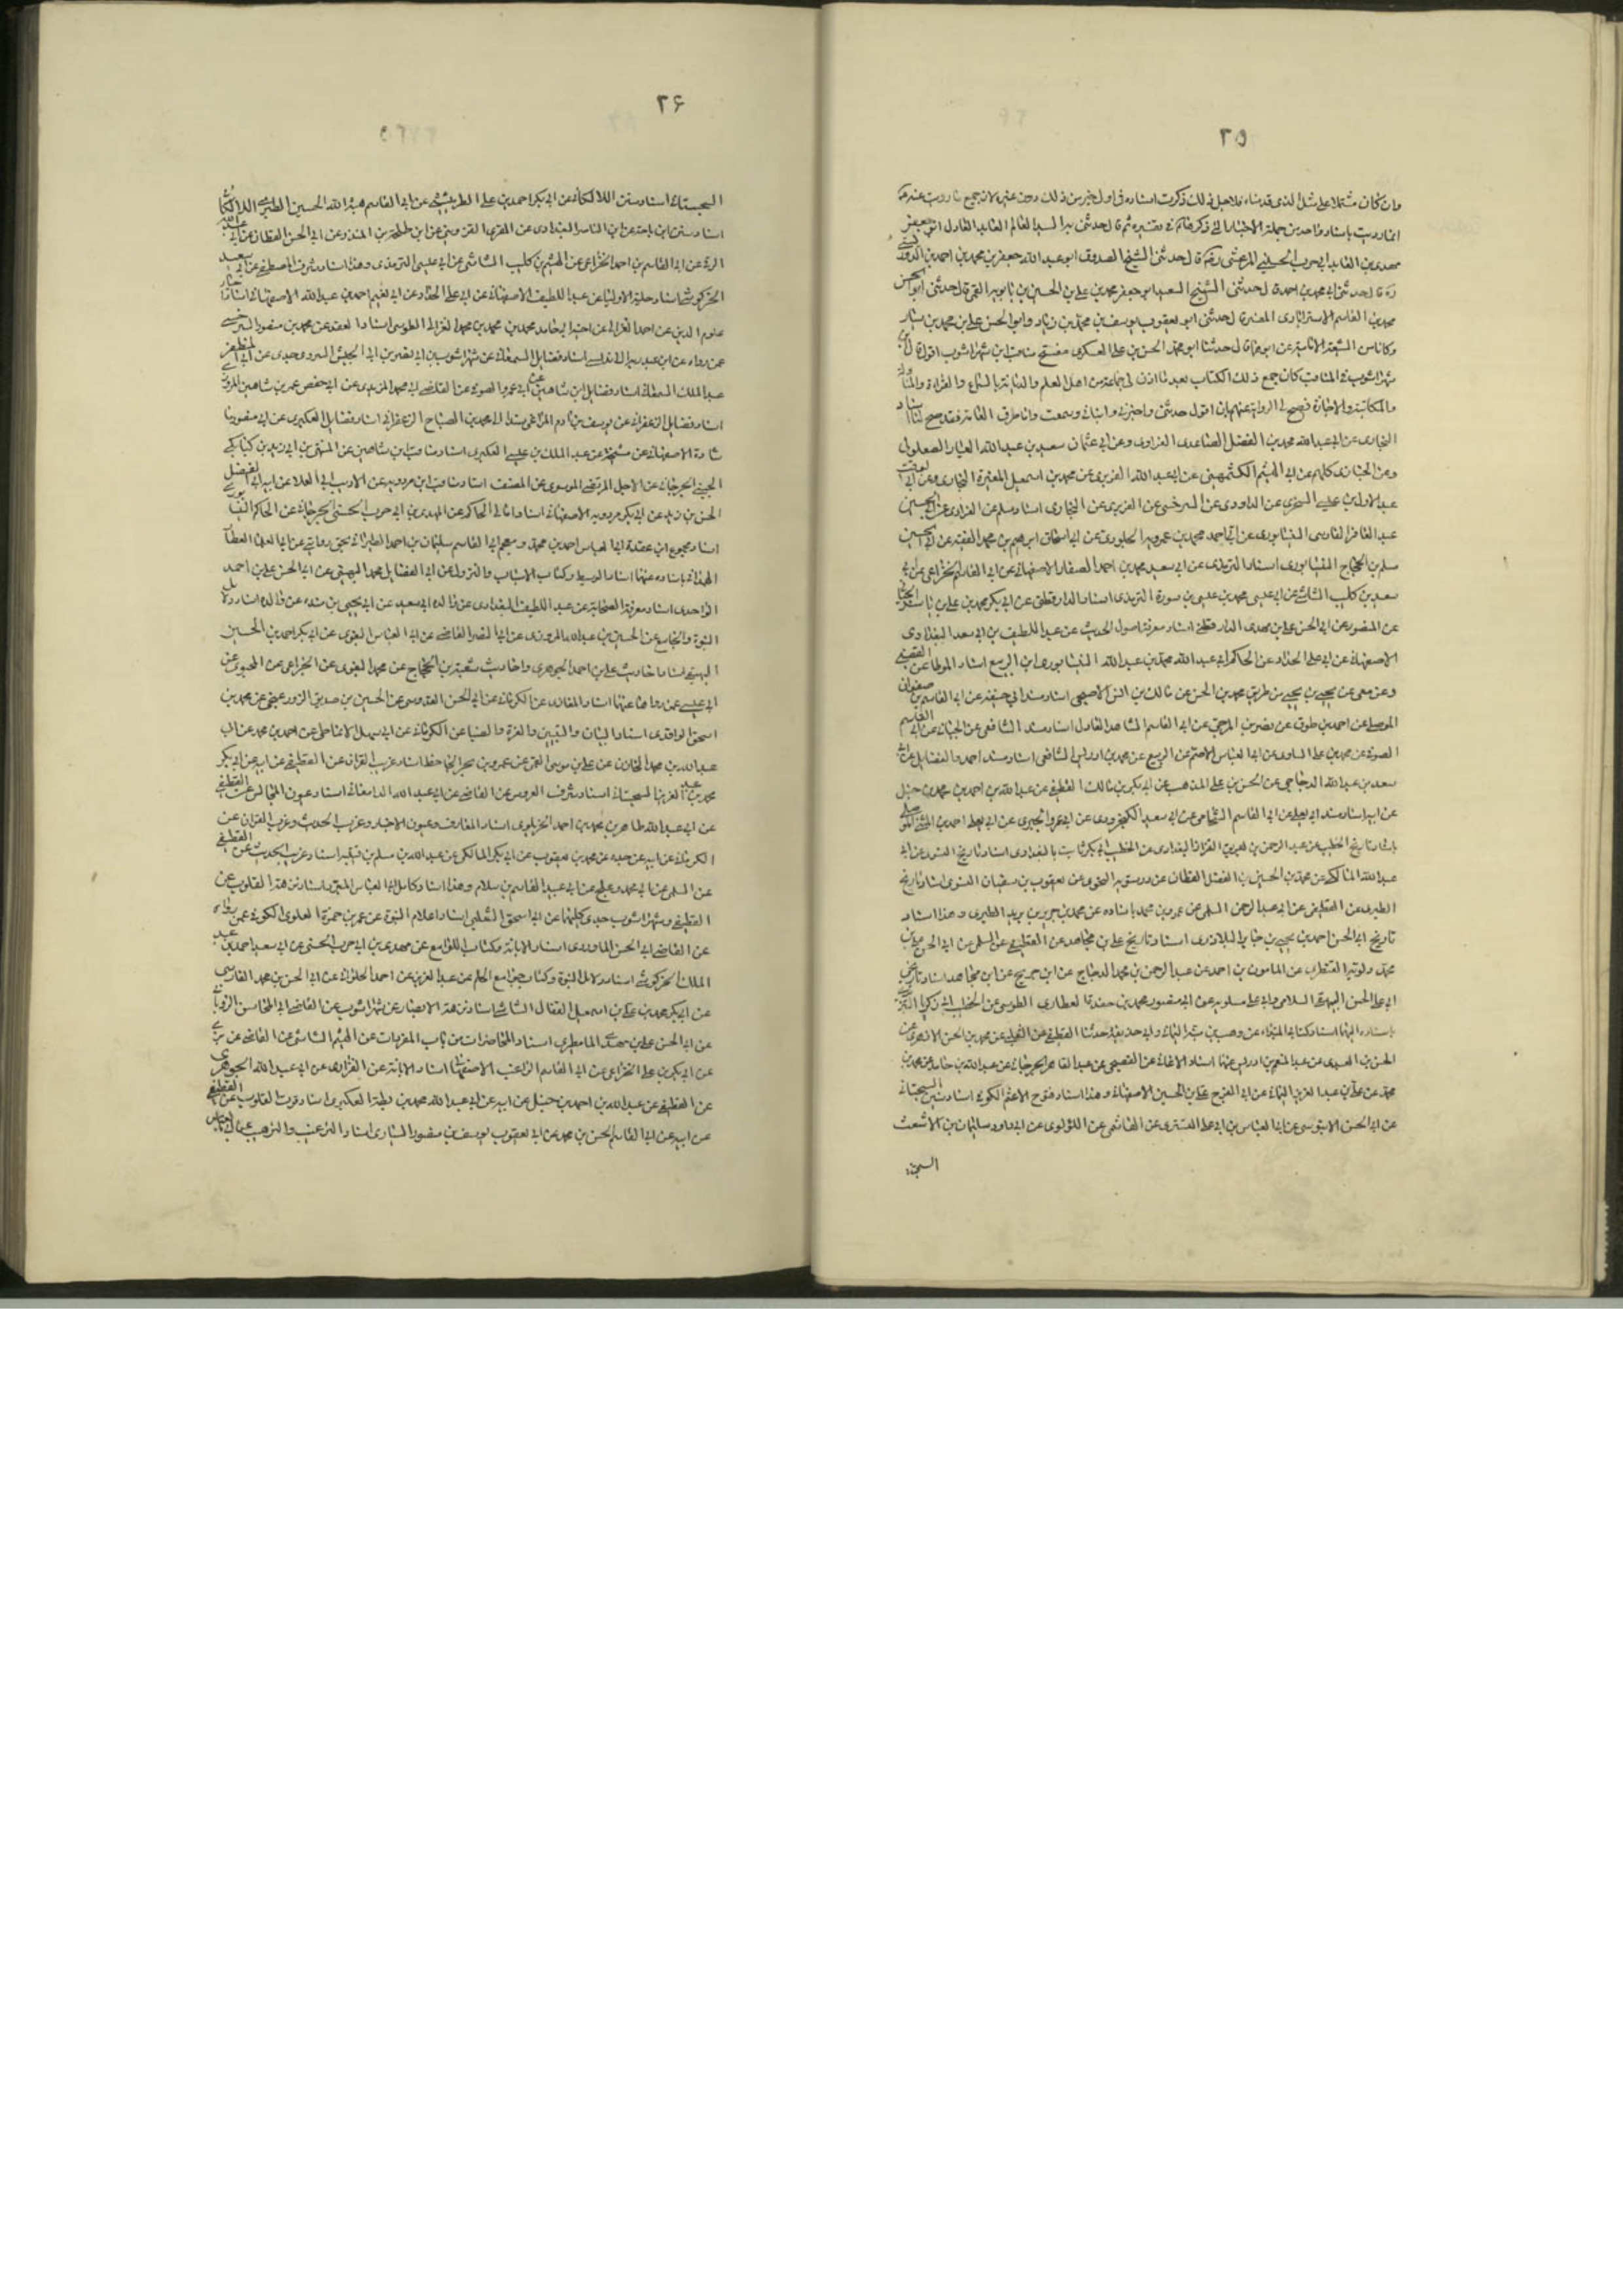 ٢٥
وان كان مشتملا على مثل الذى قدمناه فلاجل ذلك ذكرت اسناده فى اول خبر من ذلك دون غيره لان جميع ما رويت عنه
انما رويت باسناد واحد من جملة الاخبار التى ذكرها فى تفسيره ثم قال حدثنى السيد العالم العابد العادل ابو جعفر
مهدى بن العابد ابى حرب الحسينى المرعشى ره قال حدثنى الشيخ الصدوق ابو عبد الله جعفر بن محمد بن احمد الدوريستى
ره قال حدثنى ابى محمد بن احمد قال حدثنى الشيخ السعيد ابو جعفر محمد بن على بن الحسين بن بابويه القمى قال حدثنى ابو الحسن
محمد بن القاسم الاسترابادى المفسر قال حدثنى ابو يعقوب يوسف بن محمد بن زياد وابو الحسن على بن محمد بن سيار
وكانا من الشيعة الامامية عن ابويهما قال حدثنا ابو محمد الحسن بن على العسكرى مفتتح مناقب ابن شهراشوب اقول قال ابن
شهراشوب فى المناقب كان جمع ذلك الكتاب بعد ما اذن لى جماعة من اهل العلم والديانة بالسماع والقراءة والمناولة
والمكاتبة والاجازة فصح لى الرواية عنهم بان اقول حدثنى واخبرنى وانبانى وسمعت واما طرق العامة فقد صح لنا اسناد
البخارى عن ابى عبد الله محمد بن الفضل الصاعدى الفراوى وعن ابى عثمان سعيد بن عبد الله العيار الصعلوكى
وعن الخبازى كلهم عن ابى الهيثم الكشمهينى عن ابى عبد الله الفربرى عن محمد بن اسمعيل المغيرة البخارى وعن ابى الوقت
عبد الاول بن عيسى السجزى عن الداودى عن السرخسى عن الفربرى عن البخارى اسناد مسلم عن الفراوى عن ابى الحسين
عبد الغافر الفارسى النيشابورى عن ابى احمد محمد بن عمرويه الجلودى عن ابى اسحاق ابراهيم بن محمد الفقيه عن ابى الحسين
مسلم بن الحجاج النيشابورى اسناد الترمذى عن ابى سعيد محمد بن احمد الصفار الاصفهانى عن ابى القاسم الخزاعى عن ابى
سعيد بن كليب الشاشى عن ابى عيسى محمد بن عيسى بن سورة الترمذى اسناد الدارقطنى عن ابى بكر محمد بن على بن ياسر الجيانى
عن المنصورى عن ابى الحسن على بن مهدى الدارقطنى اسناد معرفة اصول الحديث عن عبد اللطيف بن ابى سعد البغدادى
الاصفهانى عن ابى على الحداد عن الحاكم ابى عبد الله محمد بن عبد الله النيشابورى ابن الربيع اسناد الموطا عن القعنبى
وعن معن عن يحيى بن يحيى من طريق محمد بن الحسن عن مالك بن انس الاصبحى اسناد مسند ابى حنيفة عن ابى القاسم بن صفوان
الموصلى عن احمد بن طوق عن نصر بن المرجى عن ابى القاسم الشاهد العادل اسناد مسند الشافعى عن الجيانى عن ابى القاسم
الصوفى عن محمد بن على الساوى عن ابى العباس الاصم عن الربيع عن محمد بن ادريس الشافعى اسناد مسند احمد والفضائل عن ابى
سعد بن عبد الله الدجاجى عن الحسن بن على المذهب عن ابى بكر بن مالك القطيفى عن عبد الله بن احمد بن محمد بن حنبل
عن ابيه اسناد مسند ابى يعلى عن ابى القاسم الشحامى عن ابى سعيد الكنجرودى عن ابى عمرو الحيرى عن ابى يعلى احمد بن المثنى الموصلى
اسناد تاريخ الخطيب عن عبد الرحمن بن بهريق القزاز البغدادى عن الخطيب ابى بكر ثابت البغدادى اسناد تاريخ النسوى عن ابى
عبد الله المالكى عن محمد بن الحسين بن الفضل القطان عن درستويه النحوى عن يعقوب بن سفيان النسوى اسناد تاريخ
الطبرى عن القطيفى عن ابى عبد الرحمن السلمى عن عمرو بن محمد باسناده عن محمد بن جرير بن بريد الطبرى وهذا اسناد
تاريخ ابى الحسن احمد بن يحيى بن جابر البلاذرى اسناد تاريخ على بن مجاهد عن القطيفى عن السلمى عن ابى الحسن على بن
محمد دلويه القنطرى عن المامون بن احمد عن عبد الرحمن بن محمد الدجاج عن ابن جريج عن ابن مجاهد اسناد تاريخى
ابى على الحسن البيهقى السلامى وابى على مسكويه عن ابى منصور محمد بن حفدة العطارى الطوسى عن الخطيب ابى زكريا التبريزى
باسناده اليهما اسناد كتابى المبتداء عن وهب بن منبه اليمانى وابى حذيفة حدثنا القطيفى عن الثعلبى عن محمد بن الحسن الازهرى عن
الحسن بن محمد العبدى عن عبد المنعم بن ادريس عنهما اسناد الاغانى عن الفصيحى عن عبد القاهر الجرجانى عن عبد الله بن حامد عن محمد بن
محمد عن على بن عبد العزيز اليمانى عن ابى الفرج على بن الحسين الاصفهانى وهذا اسناد فتوح الاعثم الكوفى اسناد سنن السجستانى
عن ابى الحسن الابنوسى عن ابى العباس بن ابى على التسترى عن الهاشمى عن اللؤلؤى عن ابى داود سليمان بن الاشعث
السجز
٢۶
السجستانى اسناد سنن اللالكائى عن ابى بكر احمد بن على الطريثيثى عن ابى القاسم هبة الله الحسين الطبرى اللالكائى
اسناد سنن ابن ماجة عن ابن الناصر البغدادى عن المقرى القزوينى عن ابن طلحة بن المنذر عن ابى الحسن القطان عن ابى عبد الله
الرقى عن ابى القاسم بن احمد الخزاعى عن الهيثم بن كليب الشاشى عن ابى عيسى الترمذى وهذا اسناد شرف المصطفى عن ابى سعيد
الخركوشى اسناد حلية الاولياء عن عبد اللطيف الاصفهانى عن ابى على الحداد عن ابى نعيم احمد بن عبد الله الاصفهانى اسناد احياء
علوم الدين عن احمد الغزالى عن اخيه ابى حامد محمد بن محمد بن محمد الغزالى الطوسى اسناد العقد عن محمد بن منصور السرخسى
عمن رواه عن ابن عبد ربه الاندلسى اسناد فضائل السمعانى عن شهراشوب بن ابى نصر بن ابى الجيش السروى جدى عن ابى المظفر
عبد الملك السمعانى اسناد فضائل ابن شاهين عن ابى عمرو الصوفى عن القاضى ابى محمد المزيدى عن ابى حفص عمر بن شاهين المروزى
اسناد فضائل الزعفرانى عن يوسف بن آدم المراغى مسندا الى محمد بن الصباح الزعفرانى اسناد فضائل العكبرى عن ابى منصور
ماشادة الاصفهانى عن مشيخته عن عبد الملك بن عيسى العكبرى اسناد مناقب ابن شاهين عن المنتهى بن ابى زيد بن كيابكى
الجينى الجرجانى عن الاجل المرتضى الموسوى عن المصنف اسناد مناقب ابن مردويه عن الاديب ابى العلا عن ابيه ابى الفضل
الحسن بن زيد عن ابى بكر مردويه الاصفهانى اسناد امالى الحاكم عن المهدى بن ابى حرب الحسنى الجرجانى عن الحاكم النيشابورى
اسناد مجموع ابن عقدة ابى العباس احمد بن محمد ومعجم ابى القاسم سليمان بن احمد الطبرانى بحق روايتى عن ابى العلا العطار
الهمدانى باسناده عنهما اسناد الوسيط وكتاب الاسباب والنزول عن ابى الفضائل محمد البيهقى عن ابى الحسن على بن احمد
الواحدى اسناد معرفة الصحابة عن عبد اللطيف البغدادى عن والده ابى سعيد عن ابى يحيى بن منده عن والده اسناد دلائل
النبوة والجامع عن الحسين بن عبد الله المروزى عن ابى النصر العاصمى عن ابى العباس البغوى عن ابى بكر احمد بن الحسين
البيهقى اسناد احاديث على بن احمد الجوهرى واحاديث شعبة بن الحجاج عن محمد البغوى عن الجراحى عن المحبوبى عن
ابى عيسى عمن رواها عنهما اسناد المغازى عن الكرمانى عن ابى الحسن القدوسى عن الحسين بن صديق الوزعنجى عن محمد بن
اسحق الواقدى اسناد البيان والتبيين والغرة والفتيا عن الكرمانى عن ابى سهل الانماطى عن احمد بن محمد عن ابى
عبد الله بن محمد الخازن عن على بن موسى القمى عن عمرو بن بحر الجاحظ اسناد غريب القران عن القطيفى عن ابيه عن ابى بكر
محمد بن عبد العزيز السجستانى اسناد شوف العروس عن القاضى عن ابى عبد الله الدامغانى اسناد عيون المجالس عن القطيفى
عن ابى عبد الله طاهر بن محمد بن احمد الخريلوى اسناد المعارف وعيون الاخبار وغريب الحديث وغريب القران عن
الكرمانى عن ابيه عن جده عن محمد بن يعقوب عن ابى بكر المالكى عن عبد الله بن مسلم بن قتيبة اسناد غريب الحديث عن القطيفى
عن السلمى عن ابى محمد دعلج عن ابى عبيد القاسم بن سلام وهذا اسناد كامل ابى العباس المبرد اسناد نزهة القلوب عن
القطيفى وشهراشوب جدى كليهما عن ابى اسحق الثعلبى اسناد اعلام النبوة عن عمر بن حمزة العلوى الكوفى عمن رواه
عن القاضى ابى الحسن الماوردى اسناد الابانة وكتاب اللوامع عن مهدى بن ابى حرب الحسنى عن ابى سعيد احمد بن عبد
الملك الخركوشى اسناد دلائل النبوة وكتاب جوامع الحلم عن عبد العزيز عن احمد الحلوانى عن ابى الحسن بن محمد الفارسى
عن ابى بكر محمد بن على بن اسمعيل القفال الشاشى اسناد نزهة الابصار عن شهراشوب عن القاضى ابى المحاسن الرويانى
عن ابى الحسن على بن مهدى المامطيرى اسناد المحاضرات من باب المفردات عن الهيثم الشاشى عن القاضى عن
عن ابى بكر بن على الخزاعى عن ابى القاسم الراغب الاصفهانى اسناد الابانة عن الفزارى عن ابى عبد الله الجوهرى
عن القطيفى عن عبد الله بن احمد بن حنبل عن ابيه عن ابى عبد الله محمد بن بطة العكبرى اسناد قوت القلوب عن القطيفى
عن ابيه عن ابى القاسم الحسن بن محمد عن ابى يعقوب يوسف بن منصور السيارى اسناد الترغيب والترهيب عن ابى العباس